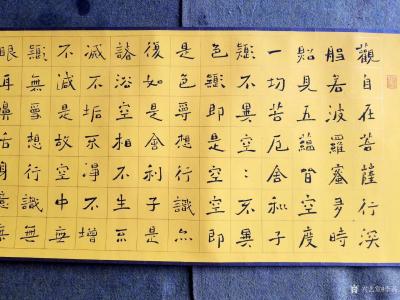 觀自在菩薩行深
般若波羅蜜多時
照見五蘊皆空度
一切苦厄舍利子
色不異空:不異
色色即是空空即
是色受想行識亦
復如是舍利子是
諸法空相不生不
滅不垢不淨不增
不減是故空中無
色無受想行識無
眼耳鼻舌身意無